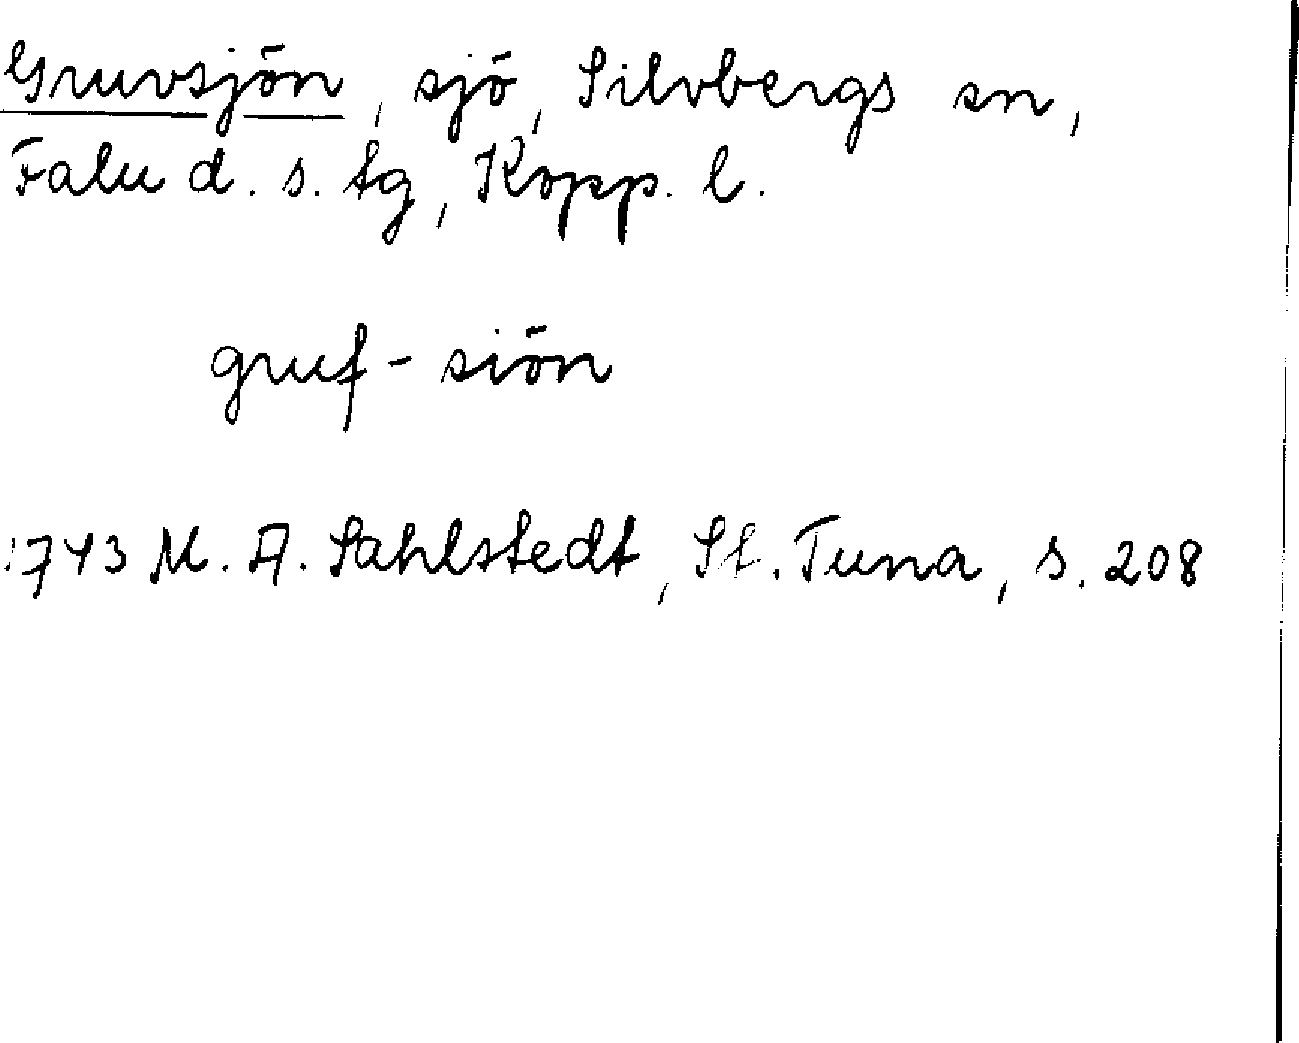 Gruvsjön, sjö, Silvbergs sn,
Falu d. s. tg, Kopp. l.
gruf-siön
1743 M. A. Sahlstedt, St. Tuna, s. 208